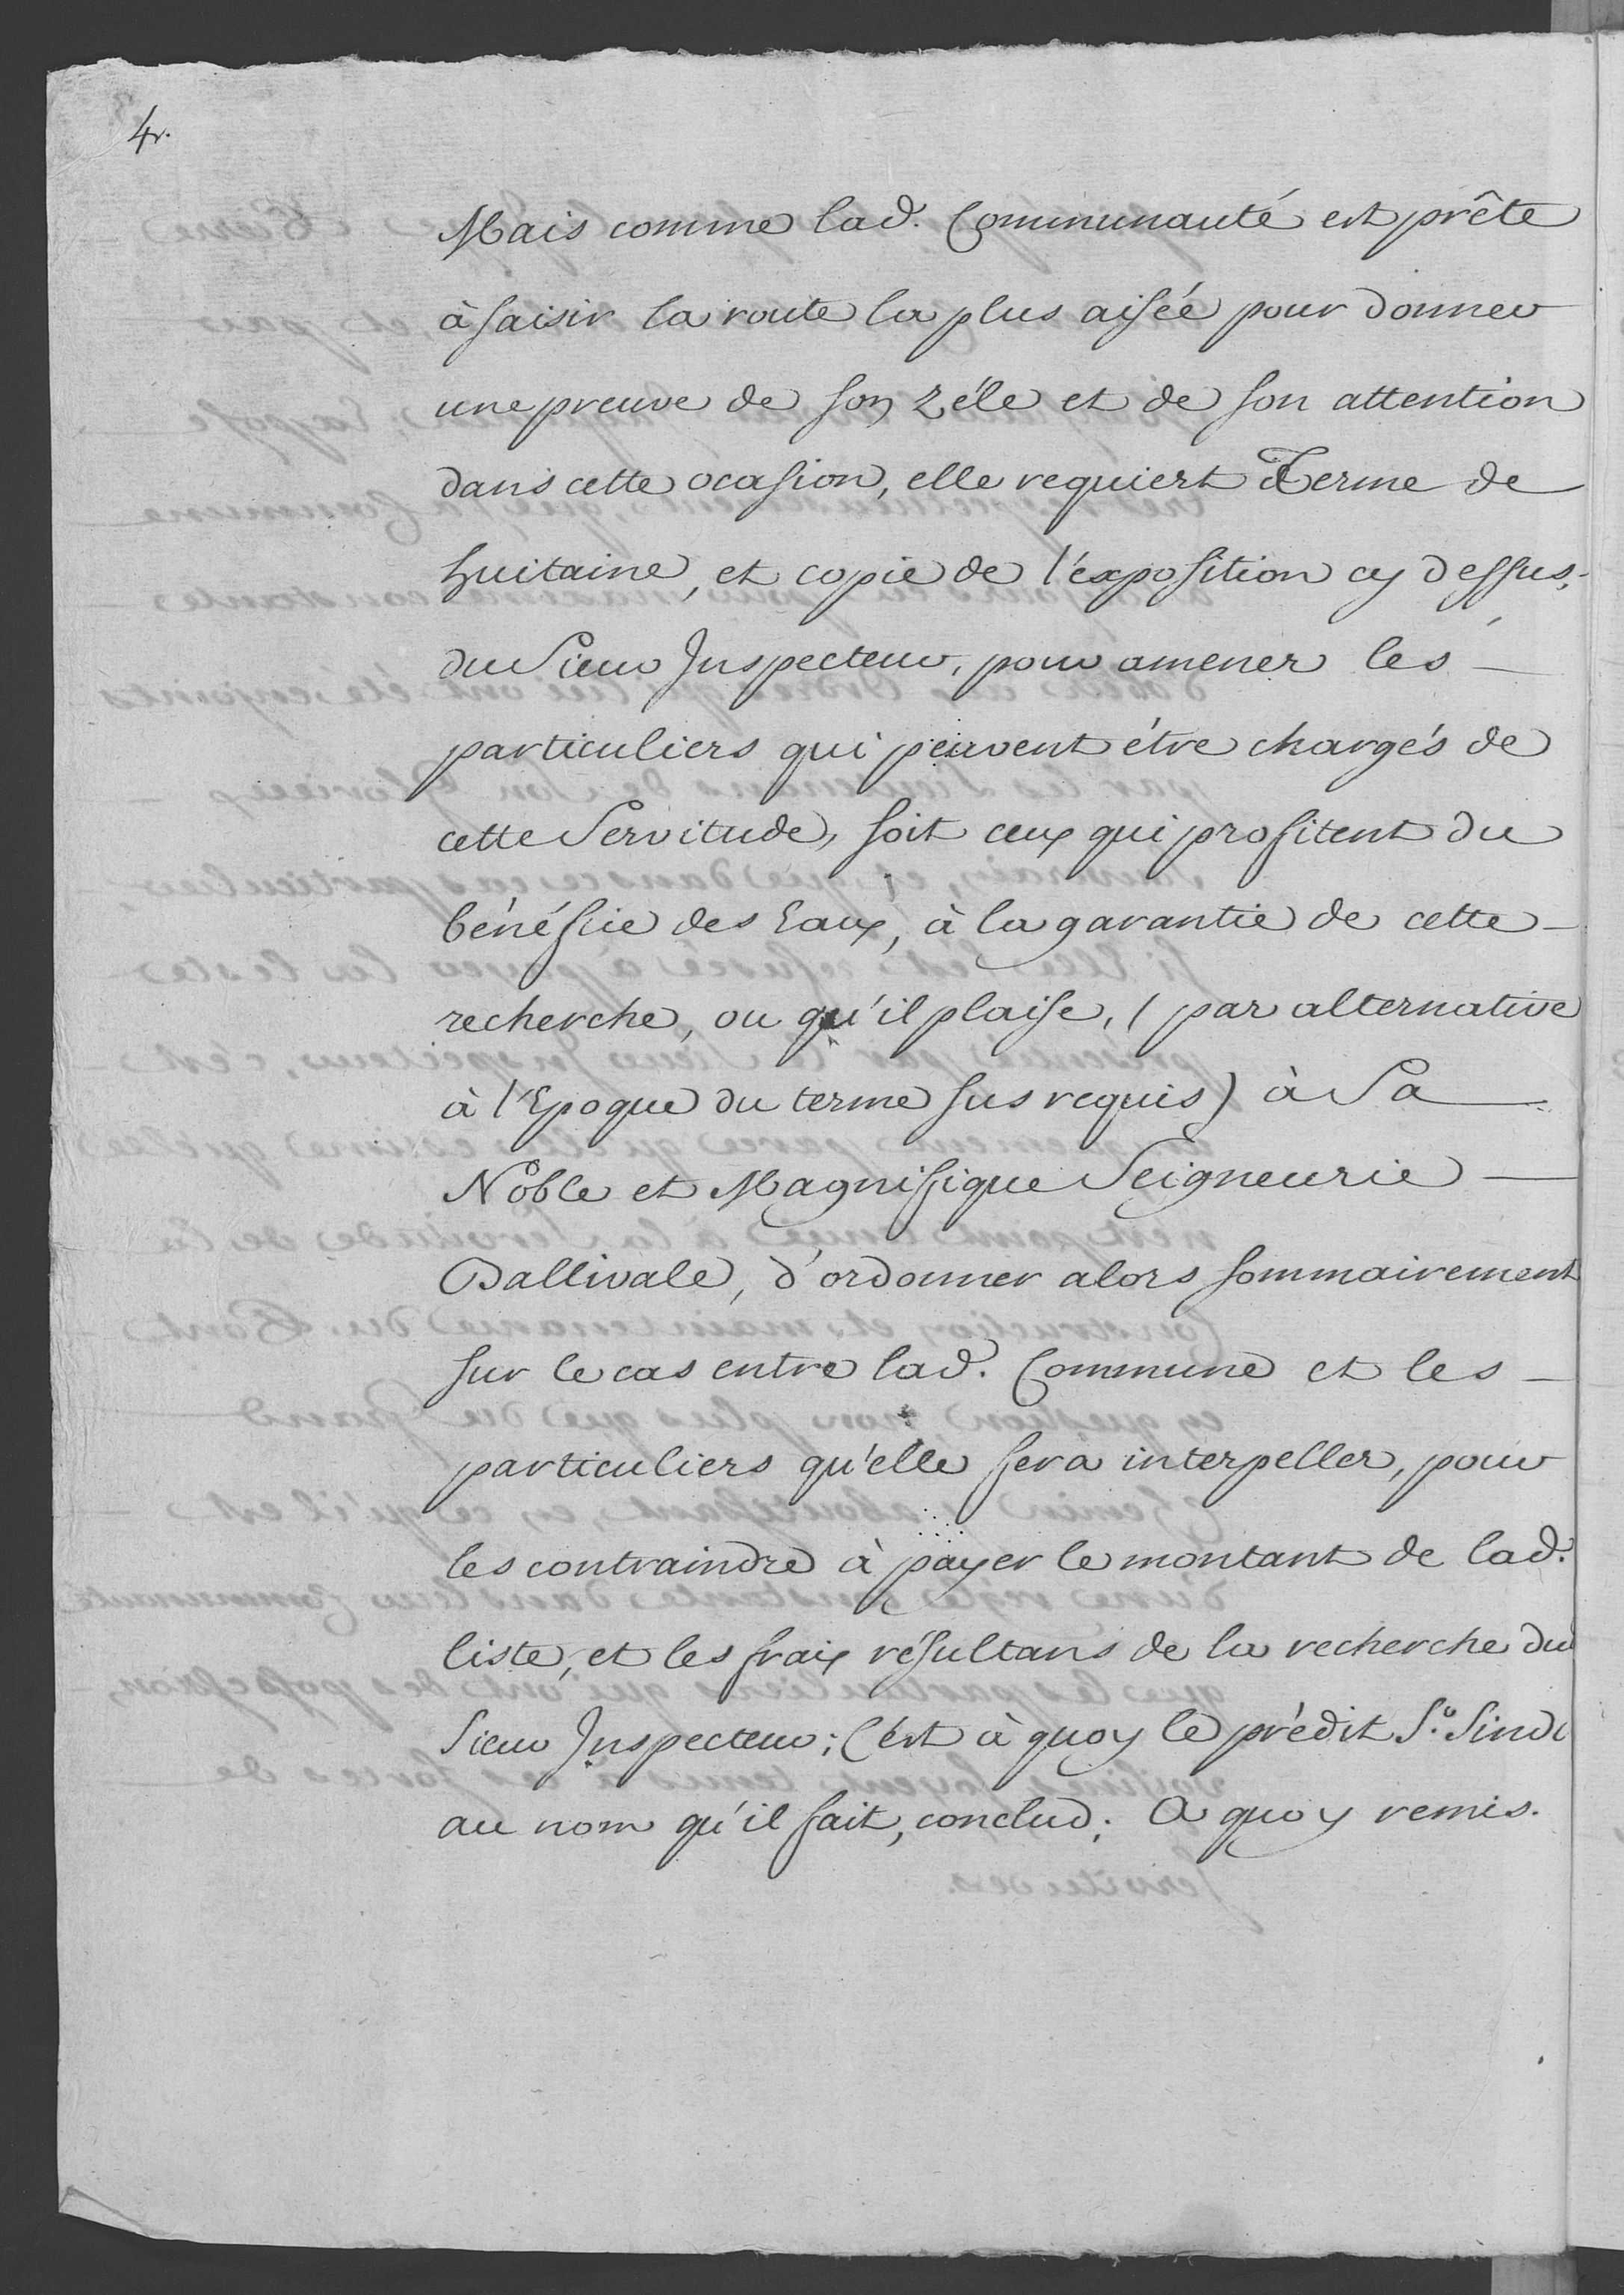 4.
Mais comme lad. Communauté est prête
à saisir la route la plus aisée pour donner
une preuve de son zéle et de son attention
dans cette ocasion, elle requiert Terme de
huitaine, et copie de l'exposition cy dessus,
du Sieur Inspecteur, pour amener les
particuliers qui peuvent étre chargés de
cette Servitude, soit ceux qui profitent du
bénéfice des Eaux, à la garantie de cette
recherche, ou qu'il plaise, ( par alternative
à l'Epoque du terme sus requis) à Sa
Noble et Magnifique Seigneurie
Ballivale, d'ordonner alors sommairement
sur le cas entre lad. Commune et les
particuliers qu'elle fera interpeller, pour
les contraindre à payer le montant de lad.
liste, et les fraix résultans de la recherche du
Sieur Inspecteur; C'est à quoy le prédit Sr. Sindi
au nom qu'il fait, conclud; A quoy remis.